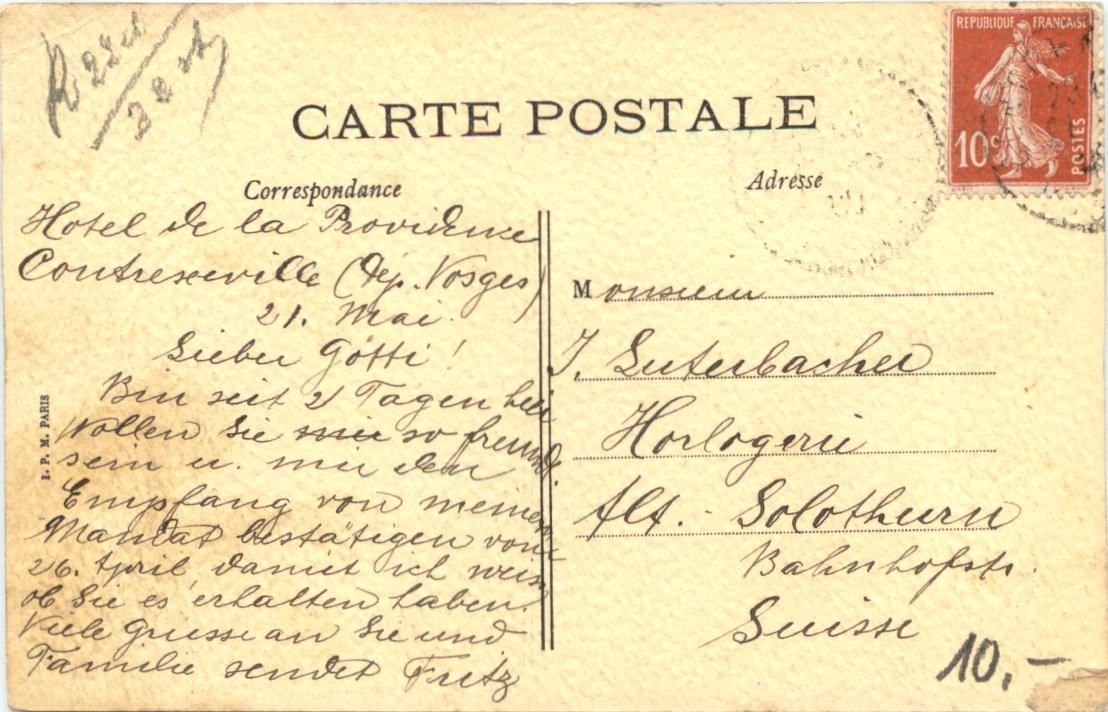 CARTE POSTALE
Correspondance
Hotel de la Providence
Contrexeville (Dép. Vosges)
21. Mai.
Lieber Götti!
Bin seit 2 Tagen hier
Wollen Sie so freund.
sein u. mir den
Empfang von meinem
Mandat bestätigen vom
26. April, damit ich weiss
ob Sie es erhalten haben.
Viele Grüsse an Sie und
Familie sendet Fritz
I. P. M. PARIS
Adresse
Monsieur
J. Luterbacher
Horlogerie
Alt. - Solothurn
Bahnhofstr.
Suisse
10.-
REPUBLIQUE FRANÇAISE
10c
POSTES